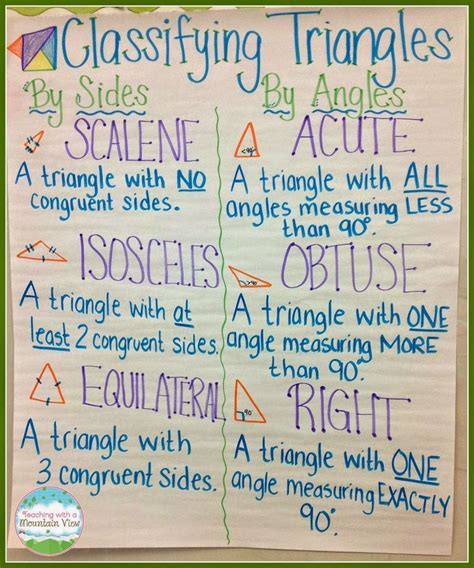 Classifying Triangles
By Sides
SCALENE
A triangle with NO
congruent sides.
ISOSCELES
A triangle with at
least 2 congruent sides.
EQUILATERAL
A triangle with
3 congruent sides.
By Angles
ACUTE
A triangle with ALL
angles measuring LESS
than 90°.
OBTUSE
A triangle with ONE
angle measuring MORE
than 90°.
RIGHT
90°
A triangle with ONE
angle measuring EXACTLY
90°.
Teaching with a
Mountain View